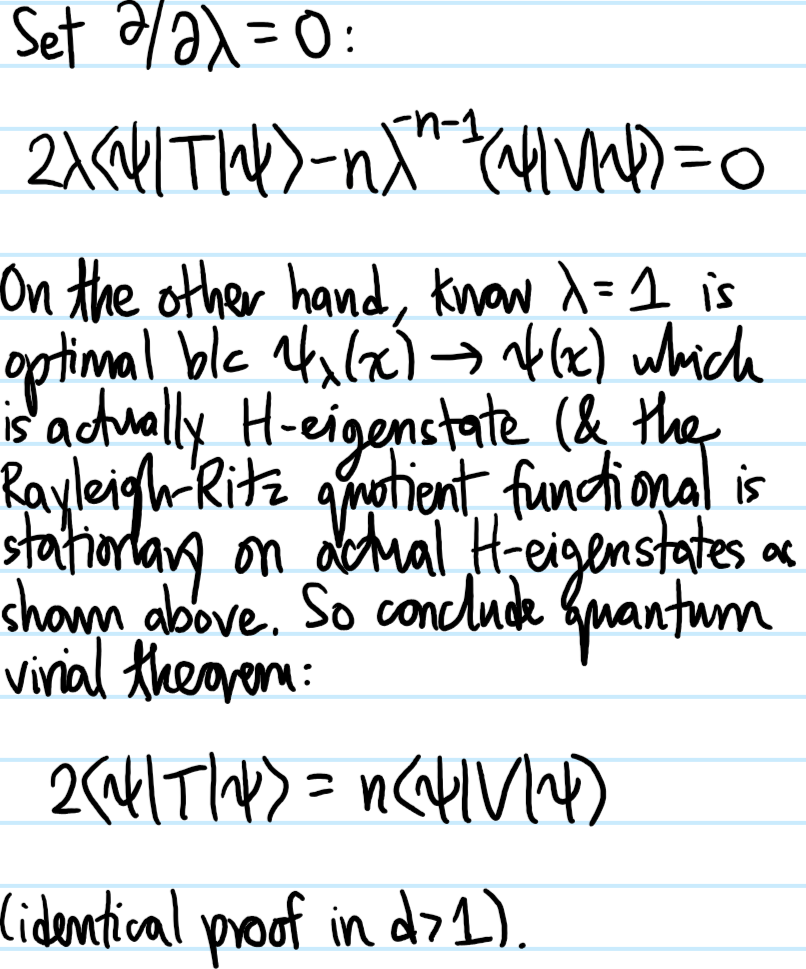 Set ∂/∂λ = 0:
2λ⟨ψ|T|ψ⟩-nλ^{-n-1}⟨ψ|V|ψ⟩=0
On the other hand, know λ=1 is
optimal b/c ψ_λ(x) → ψ(x) which
is actually H-eigenstate (& the
Rayleigh-Ritz quotient functional is
stationary on actual H-eigenstates as
shown above. So conclude quantum
virial theorem:
2⟨ψ|T|ψ⟩ = n⟨ψ|V|ψ⟩
(identical proof in d>1).